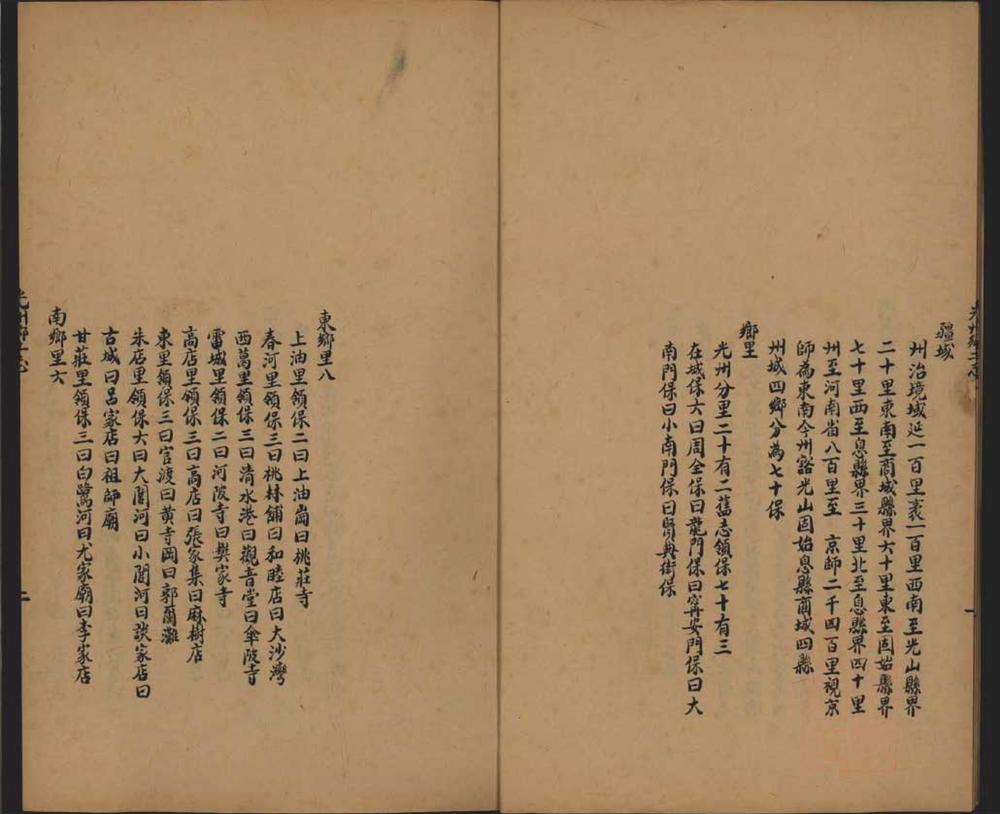 疆域
州治境域延一百里袤一百里西南至光山縣界
二十里東南至商城縣界六十里東至固始縣界
七十里西至息縣界三十里北至息縣界四十里
州至河南省八百里至 京師二千四百里視京
師為東南今州豁光山固始息縣商城四縣
州城四鄉分為七十保
鄉里
光州分里二十有二舊志領保七十有三
在城保六曰周全保曰龍門保曰甯安門保曰大
南門保曰小南門保曰賢典街保
東鄉里八
上油里領保二曰上油崗曰桃莊寺
春河里領保三曰桃林鋪曰和睦店曰大沙灣
西萬里領保三曰清水港曰觀音堂曰傘陂寺
雷城里領保二曰河陂寺曰樊家寺
高店里領保三曰高店曰張家集曰麻樹店
東里領保三曰官渡曰黃寺岡曰郭爾灘
朱店里領保大曰大閭河曰小閭河曰談家店曰
古城曰呂家店曰祖師廟
甘莊里領保三曰白鷺河曰尤家廟曰李家店
南鄉里六
二